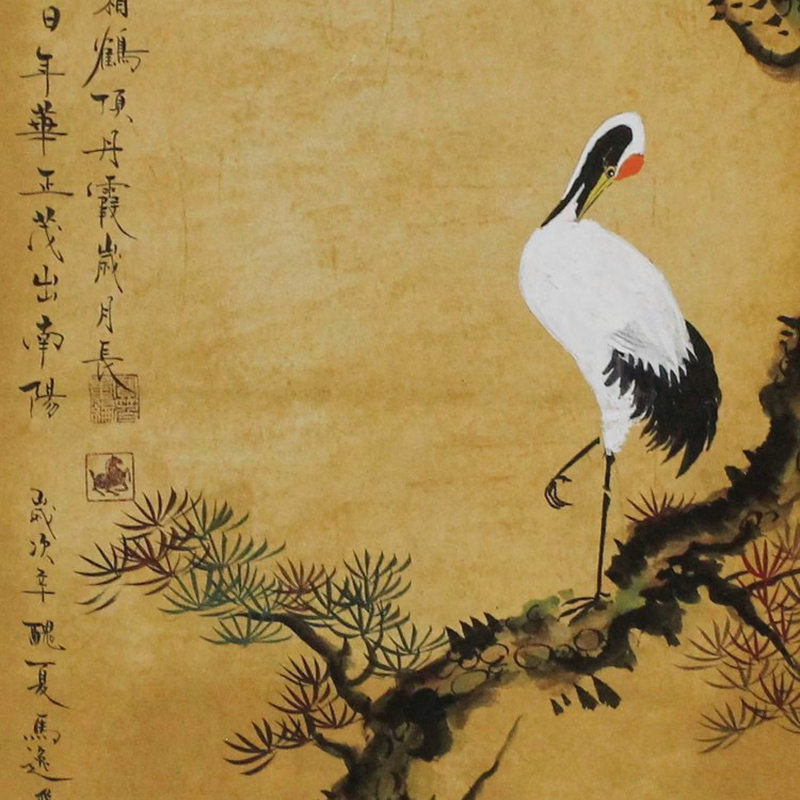 鶴頂丹霞歲月長
日年華正茂出南陽
歲次辛醜夏馬逸